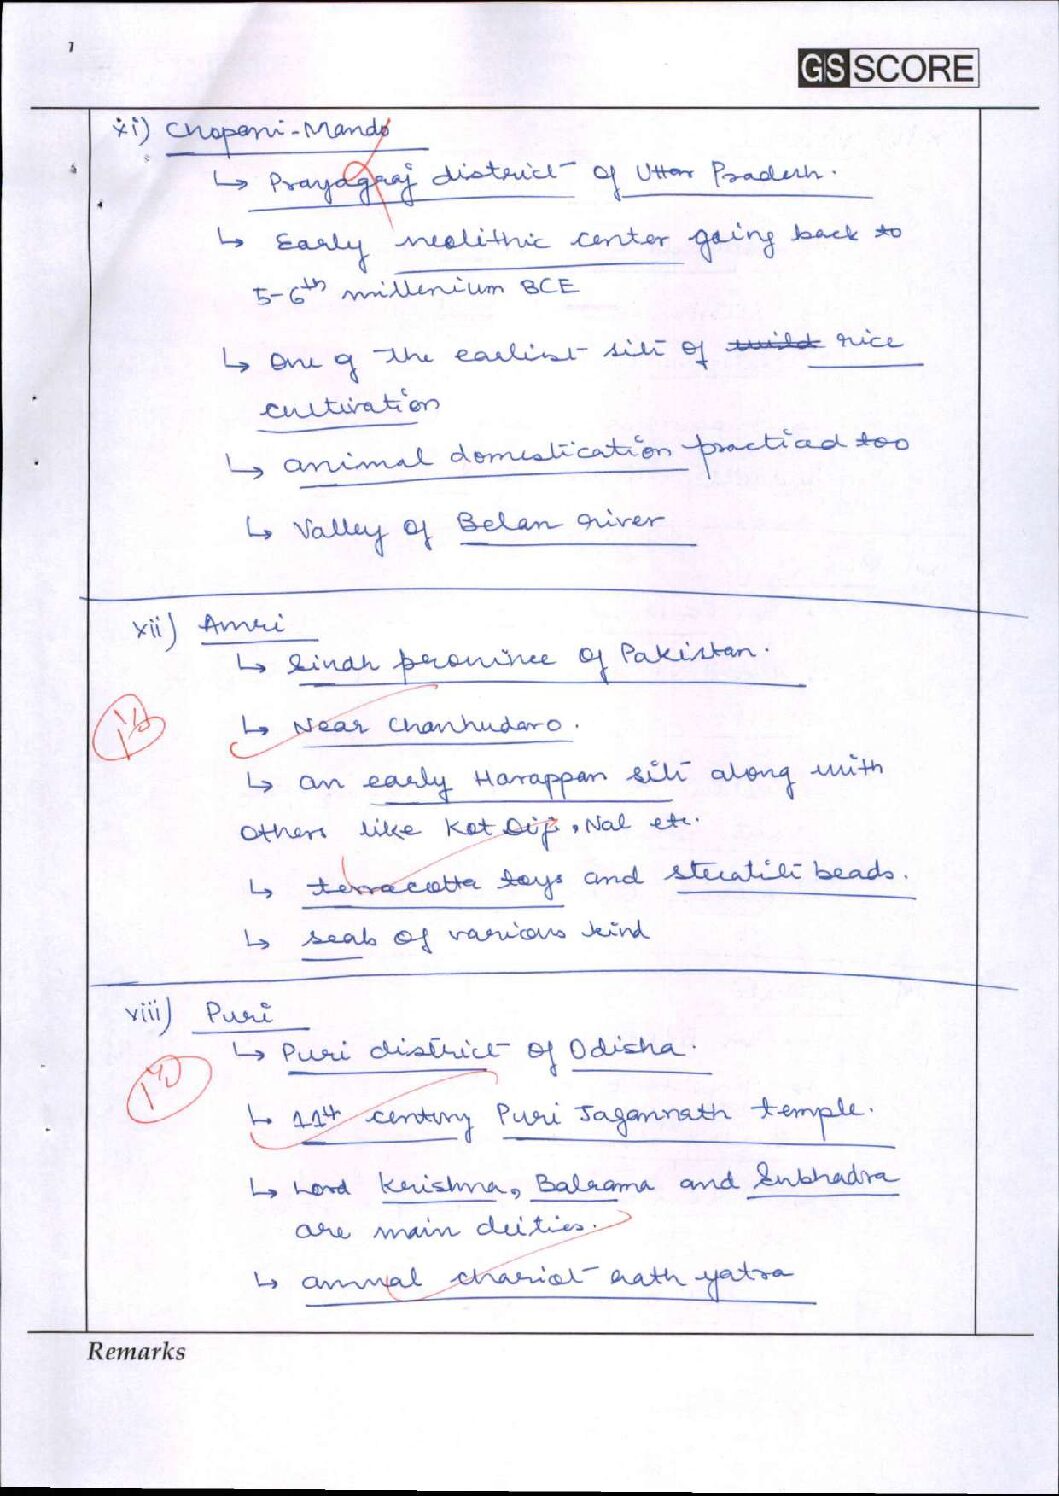 GS SCORE
xi) Chopani-Mando
↳ Prayagraj district of Uttar Pradesh.
↳ Early neolithic center going back to
5-6th millenium BCE
↳ One of the earliest site of wild rice
cultivation
↳ animal domestication practiced too
↳ Valley of Belan river
xii) Amri
↳ Sindh province of Pakistan.
↳ Near Chanhudaro.
↳ an early Harappan site along with
others like Kot Diji, Nal etc.
↳ terracotta toys and steatite beads.
↳ seals of various kind
viii) Puri
↳ Puri district of Odisha.
↳ 11th century Puri Jagannath temple.
↳ Lord Krishna, Balrama and Subhadra
are main deities.
↳ annual chariot rath yatra
Remarks